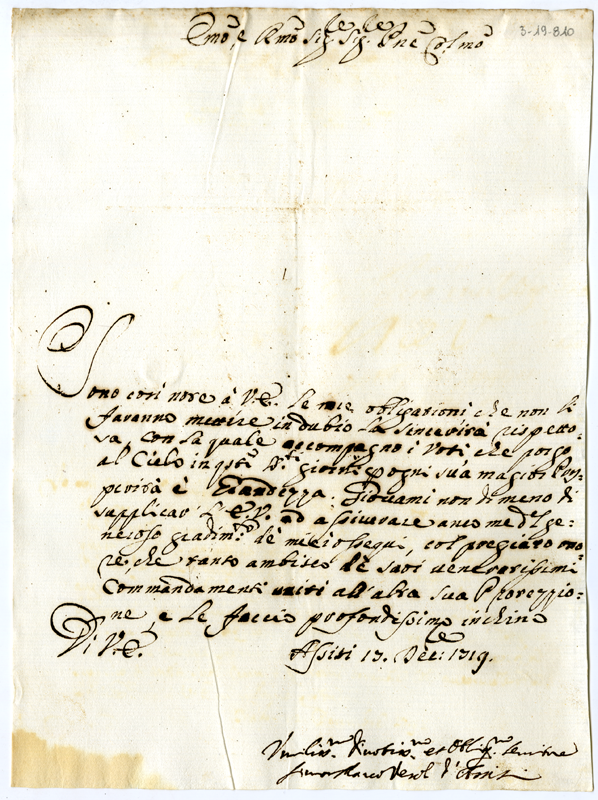 Emo, e Rmo Sig.re Sig.re Pne Colmo
3-19-810
Sono così note à V.E. le mie obligazioni che non si
faranno mettere in dubio la sincerità rispetto-
sa, con la quale accompagno i Voti che porgo
al Cielo in qsti S.ti giorni p ogni sua magior Pros-
perità è Grandezza. Giovami non di meno di
supplicar l'E.V. ad assicurare anco me del ge-
neroso gradim.to de miei ossequi, col pregiato ono-
re, che tanto ambisco de suoi veneratissimi
Commandamenti uniti all'alta sua Protezzio-
ne, e le faccio profondissimo inchino
Di V.E.
Assisi 13. Dec.e: 1719.
Umiliss.mo Divotiss.mo et Obblig.mo Servitore